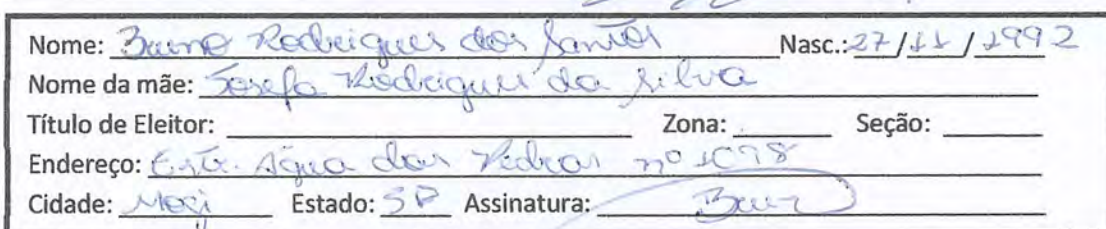 Nome: Bruno Rodrigues dos Santos Nasc.: 27/11/1992
Nome da mãe: Josefa Rodrigues da Silva
Título de Eleitor: Zona: Seção:
Endereço: Estr. Água das Pedras nº 1098
Cidade: Mogi Estado: SP Assinatura: Bruno